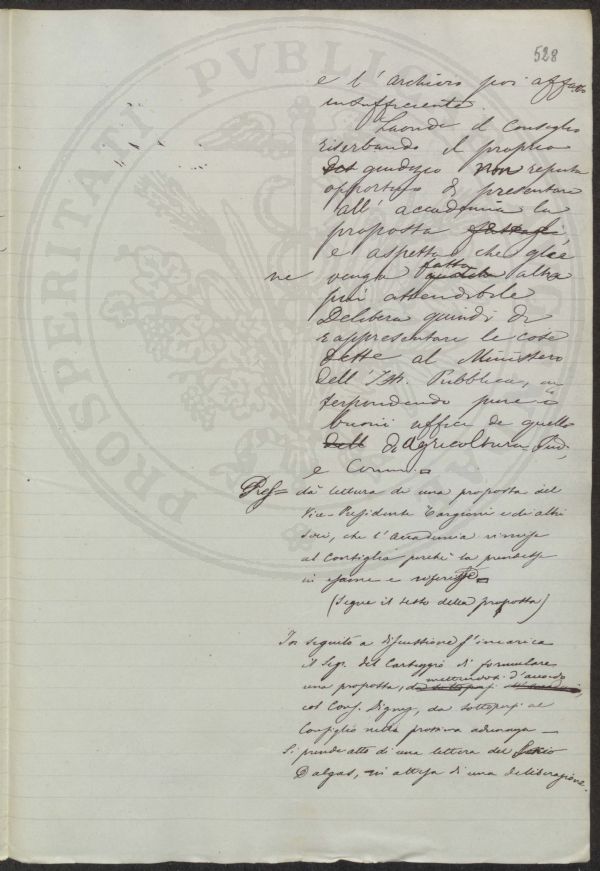 528
e l'Archivio poi affatto
insufficiente.
Laonde il Consiglio
riserbando il proprio
giudizio non reputa
opportuno di presentare
all'accademia la
proposta
e aspetta che gliene
venga fatta altra
più attendibile
Delibera quindi di
rappresentare le cose
dette al Ministero
dell'Ist. Pubblica, in
terponendo pure i
buoni uffici di quello
di Agricoltura Ind.
e Comm.
Pres= dà lettura di una proposta del
Vice-Presidente Targioni e di altri
soci, che l'Accademia rimise
al Consiglio perché la prendesse
in esame e riferisse.
(Segue il testo della proposta)
In seguito a discussione s'incarica
il Segr. del Carteggio di formulare
una proposta, mettendosi d'accordo
col Cons. Digny, da sottoporsi al
Consiglio nella prossima adunanza—
Si prende atto di una lettera del Socio
Dalgas, in attesa di una deliberazione.
PROSPERITATI PVBLICAE